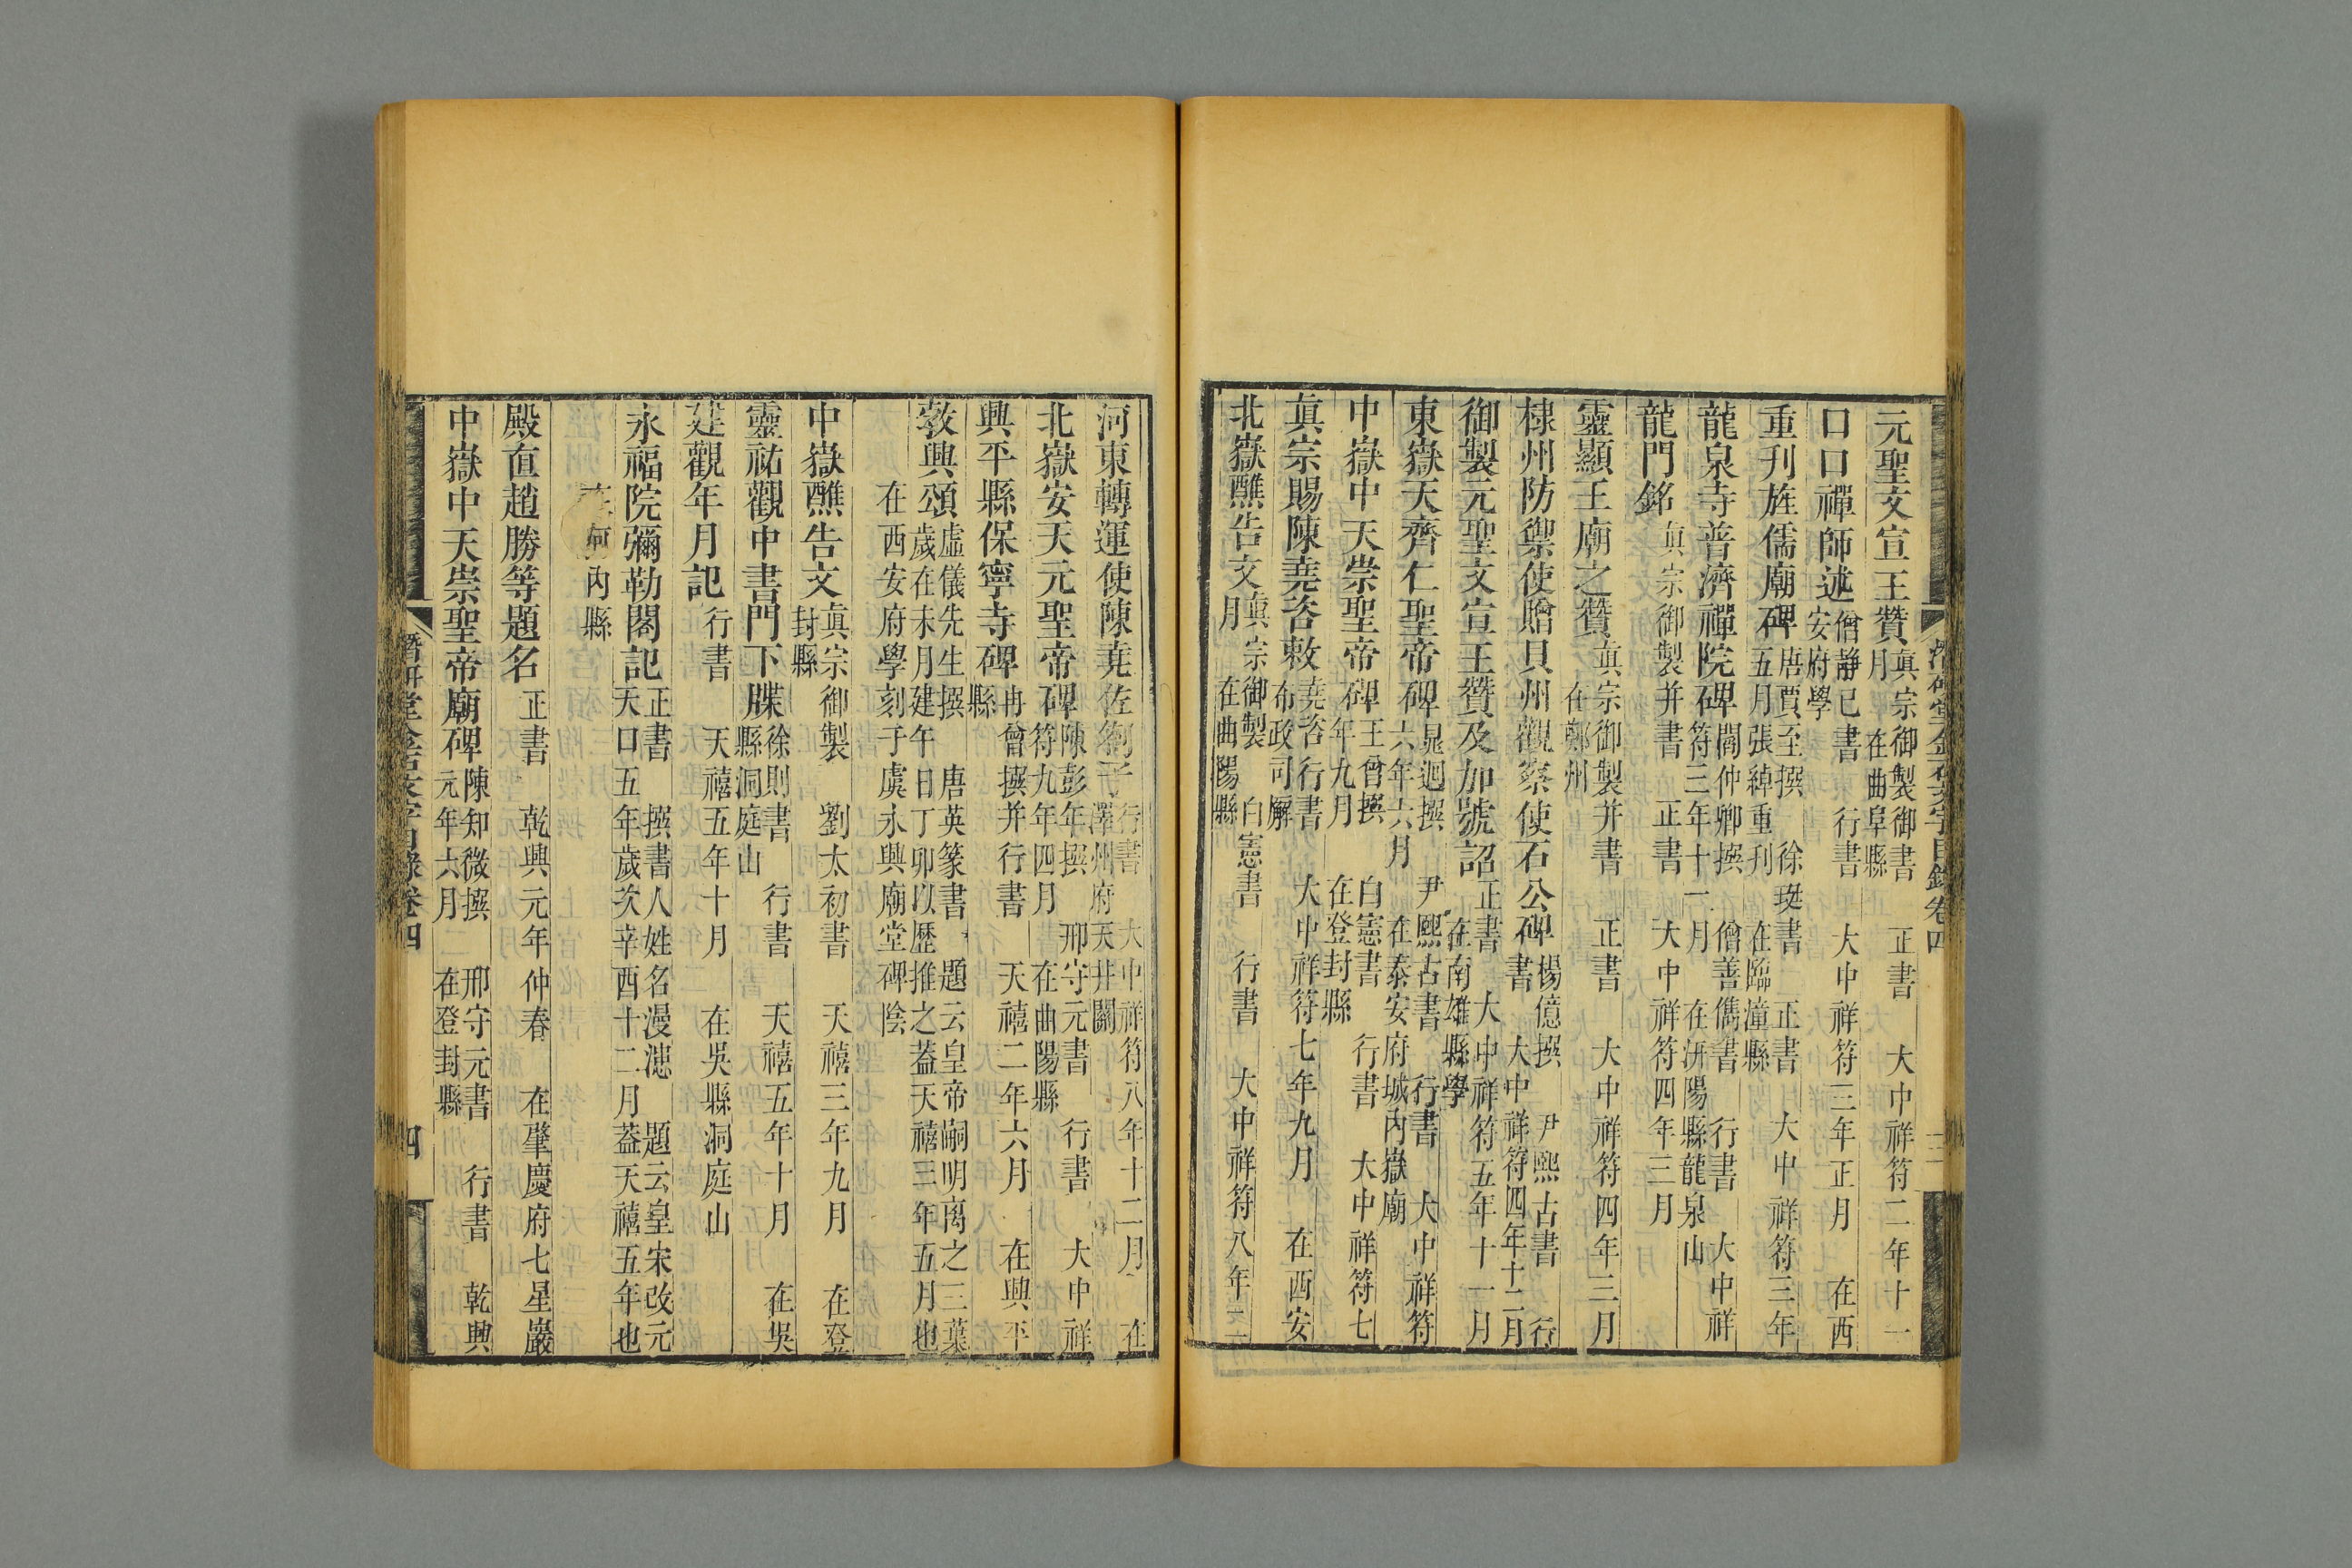 元聖文宣王贊 真宗御製御書 正書 大中祥符二年十一月 在曲阜縣
口口禪師述 僧靜已書 行書 大中祥符三年正月 在西安府學
重刊旌儒廟碑 唐賈至撰 徐珽書 正書 大中祥符三年五月張綽重刊 在臨潼縣
龍泉寺普濟禪院碑 閻仲卿撰 僧善儁書 行書 大中祥符三年十一月 在汧陽縣龍泉山
龍門銘 真宗御製并書 正書 大中祥符四年三月
靈顯王廟之贊 真宗御製并書 正書 大中祥符四年三月 在鄭州
棣州防禦使贈貝州觀察使石公碑 楊億撰 尹熙古書 行書 大中祥符四年十二月
御製元聖文宣王贊及加號詔 正書 大中祥符五年十一月 在南雄縣學
東嶽天齊仁聖帝碑 晁迥撰 尹熙古書 行書 大中祥符六年六月 在泰安府城內嶽廟
中嶽中天崇聖帝碑 王曾撰 白憲書 行書 大中祥符七年九月 在登封縣
真宗賜陳堯咨敕 堯咨行書 大中祥符七年九月 在西安布政司廨
北嶽醮告文 真宗御製 白憲書 行書 大中祥符八年二月 在曲陽縣
潛研堂金石文字目錄卷四 三
河東轉運使陳堯佐 行書 大中祥符八年十二月 在澤州府天井關
北嶽安天元聖帝碑 陳彭年撰 邢守元書 行書 大中祥符九年四月 在曲陽縣
興平縣保寧寺碑 冉曾撰并行書 天禧二年六月 在興平縣
敦興頌 虛儀先生撰 唐英篆書 題云皇帝嗣明离之三葉歲在未月建午日丁卯以歷推之蓋天禧三年五月也
在西安府學刻于虞永興廟堂碑陰
中嶽醮告文 真宗御製 劉太初書 天禧三年九月 在登封縣
靈祐觀中書門下牒 徐則書 行書 天禧五年十月 在吳縣洞庭山
建觀年月記 行書 天禧五年十月 在吳縣洞庭山
永福院彌勒閣記 正書 撰書人姓名漫漶 題云皇宋改元天口五年歲次辛酉十二月蓋天禧五年也
在河內縣
殿直趙勝等題名 正書 乾興元年仲春 在肇慶府七星巖
中嶽中天崇聖帝廟碑 陳知微撰 邢守元書 行書 乾興元年六月 在登封縣
潛研堂金石文字目錄卷四 四